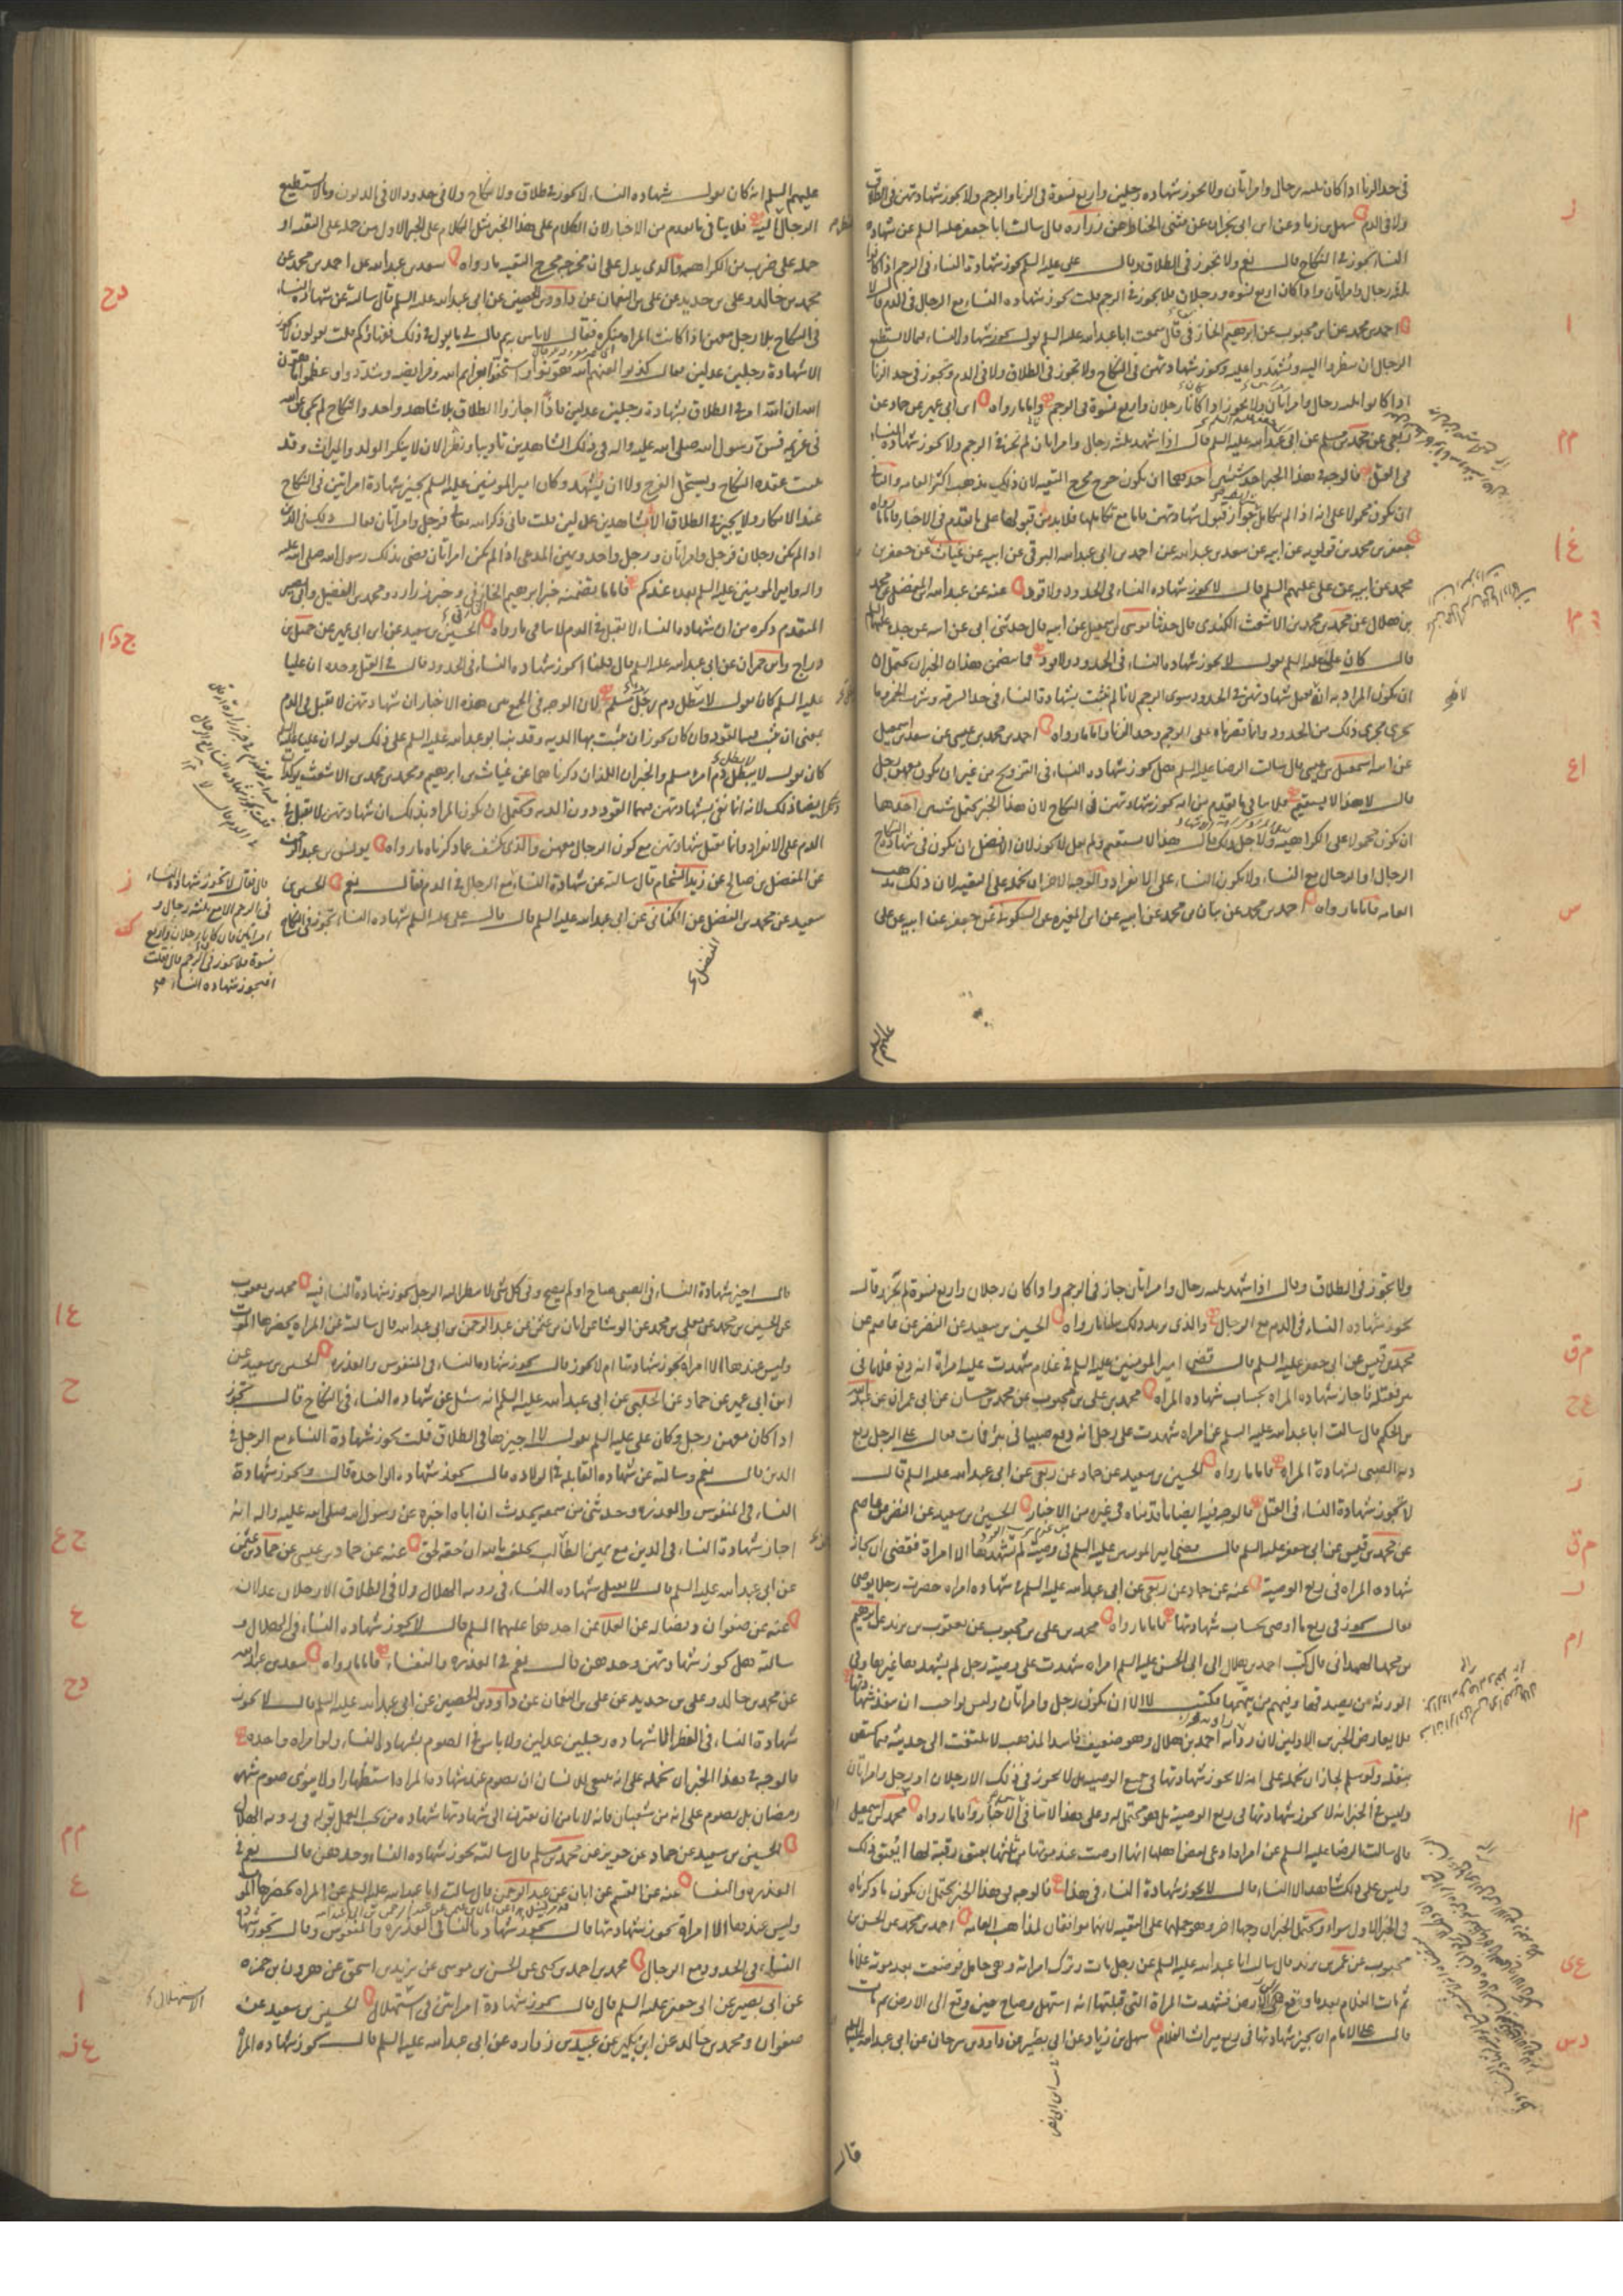 في حد الزنا اذا كان ثلثه رجال وامراتان ولا يجوز شهاده رجلين واربع نسوة في الزنا والرجم ولا يجوز شهادتهن في الطلاق
ولا في الدم سهل بن زياد عن ابن ابي نجران عن مثنى الحناط عن زراره قال سالت ابا جعفر عليه السلم عن شهاده
النساء تجوز في النكاح قال نعم ولا تجوز في الطلاق وقال على عليه السلم تجوز شهادة النساء في الرجم اذا كانوا
ثلثة رجال وامراتان واذا كان اربع نسوه ورجلان فلا يجوز في الرجم قلت تجوز شهاده النساء مع الرجال في الدم قال لا
احمد بن محمد عن ابن محبوب عن ابرهيم الخارقي قال سمعت ابا عبد الله عليه السلم يقول تجوز شهادة النساء فيما لا يستطيع
الرجال ان ينظروا اليه ويشهدوا عليه وتجوز شهادتهن في النكاح ولا تجوز في الطلاق ولا في الدم وتجوز في حد الزنا
اذا كانوا ثلثه رجال وامراتان ولا تجوز اذا كانا رجلان واربع نسوة في الرجم واما ما رواه ابن ابي عمير عن حماد عن
ربعي عن محمد بن مسلم عن ابي عبد الله عليه السلم قال اذا شهد ثلثه رجال وامراتان لم تجز في الرجم ولا تجوز شهاده النساء
في القتل فالوجه في هذا الخبر احد شيئين احدهما ان يكون خرج مخرج التقيه لان ذلك مذهب اكثر العامه والثاني
ان يكون محمولا على انه اذا لم يتكامل جواز قبول شهادتهن فاما مع تكاملها فلابد من قبولها على ما تقدم في الاخبار فاما ما رواه
جعفر بن محمد بن قولويه عن ابيه عن سعد بن عبد الله عن احمد بن ابي عبد الله البرقي عن ابيه عن غياث عن جعفر بن
محمد عن ابيه عن علي عليهم السلم قال لا تجوز شهاده النساء في الحدود ولا قود عنه عن عبد الله بن المفضل عن محمد
بن هلال عن محمد بن محمد بن الاشعث الكندي قال حدثنا موسى بن اسمعيل عن ابيه قال حدثني ابي عن ابيه عن جده عليهم السلم
قال كان علي عليه السلم يقول لا تجوز شهادة النساء في الحدود ولا قود فما يتضمن هذان الخبران يحتمل ان
ان يكون المراد به انه لا تقبل شهادتهن في الحدود سوى الرجم لانا لم نثبت بشهادة النساء في حد السرقه وشرب الخمر وما
يجري مجرى ذلك من الحدود وانما قصرناه على الرجم وحد الزنا واما ما رواه احمد بن محمد بن عيسى عن سعد بن اسمعيل
عن ابيه اسمعيل بن عيسى قال سالت الرضا عليه السلم هل تجوز شهاده النساء في التزويج من غير ان يكون معهن رجل
قال لا هذا لا يستقيم فلا ينافي ما تقدم من انه تجوز شهادتهن في النكاح لان هذا الخبر يحتمل شيئين احدهما
ان يكون محمولا على الكراهيه ولاجل ذلك قال هذا لا يستقيم ولم يقل لا يجوز لان الافضل ان يكون في شهاده النكاح
الرجال او الرجال مع النساء ولا يكون النساء على الانفراد والوجه الاخر ان نحمله على التقيه لان ذلك مذهب
العامه فاما ما رواه احمد بن محمد عن بنان بن محمد عن ابيه عن ابن المغيره عن السكوني عن جعفر عن ابيه عن علي
عليهم السلم انه كان يقول شهاده النساء لا تجوز في طلاق ولا نكاح ولا في حدود الا في الديون وما لا يستطيع
الرجال اليه فلا ينافي ما تقدم من الاخبار لان الكلام على هذا الخبر مثل الكلام على الخبر الاول من حمله على التقيه او
حمله على ضرب من الكراهيه والذي يدل على ان مخرجه مخرج التقيه ما رواه سعد بن عبد الله عن احمد بن محمد عن
محمد بن خالد وعلي بن حديد عن علي بن النعمان عن داود بن الحصين عن ابي عبد الله عليه السلم قال سالته عن شهاده النساء
في النكاح بلا رجل معهن اذا كانت المراه منكرة فقال لا باس به ثم قال لي ما يقول في ذلك فقهاؤكم قلت يقولون لا تجوز
الا شهادة رجلين عدلين فقال كذبوا لعنهم الله هونوا واستخفوا بعزايم الله وفرايضه وشددوا وعظموا ما هون
الله ان الله امر في الطلاق بشهادة رجلين عدلين فاجازوا الطلاق بلا شاهد واحد والنكاح لم يجئ عن الله
في عزيمه فسن رسول الله صلى الله عليه واله في ذلك الشاهدين تاديبا ونظرا لان لا ينكر الولد والميراث وقد
ثبت عقدة النكاح ويستحل الفرج ولا ان يشهد وكان امير المومنين عليه السلم يجيز شهادة امراتين في النكاح
عند الانكار ولا يجيز في الطلاق الا شاهدين عدلين قلت فانى ذكر الله تعالى فرجل وامراتان فقال ذلك في الدين
اذا لم يكن رجلان فرجل وامراتان ورجل واحد ويمين المدعي اذا لم يكن امراتان قضى بذلك رسول الله صلى الله عليه
واله وامير المومنين عليه السلم بعده عندكم فاما ما يتضمنه خبر ابرهيم الخارقي وخبر زراره ومحمد بن الفضيل وابي بصير
المتقدم ذكره من ان شهادة النساء لا تقبل في الدم لا ينافي ما رواه الحسين بن سعيد عن ابن ابي عمير عن جميل بن
دراج وابن حمران عن ابي عبد الله عليه السلم قال قلنا اتجوز شهاده النساء في الحدود قال في القتل وحده ان عليا
عليه السلم كان يقول لا يبطل دم رجل مسلم لان الوجه في الجمع بين هذه الاخبار ان شهادتهن لا تقبل في الدم
بمعنى ان يثبت بها القود وان كان يجوز ان يثبت بها الديه وقد نبه ابو عبد الله عليه السلم على ذلك بقوله ان عليا عليه السلم
كان يقول لا يبطل دم امرء مسلم والخبران اللذان ذكرناهما عن غياث بن ابرهيم ومحمد بن محمد بن الاشعث يؤكدان
ايضا ذلك لانه انما نفي بشهادتهن فيهما القود دون الديه ويحتمل ان يكون المراد بذلك ان شهادتهن لا تقبل في
الدم على الانفراد وانما تقبل شهادتهن مع كون الرجال معهن والذي يكشف عما ذكرناه ما رواه يونس بن عبد الرحمن
عن المفضل بن صالح عن زيد الشحام قال سالته عن شهادة النساء مع الرجال في الدم فقال نعم الحسين بن
سعيد عن محمد بن الفضيل عن الكناني عن ابي عبد الله عليه السلم قال قال علي عليه السلم شهاده النساء تجوز في النكاح
قال فقال لا تجوز شهادة النساء
في الرجم الا مع ثلثه رجال و
امراتين فان كان رجلان واربع
نسوة فلا تجوز في الرجم قال قلت
افتجوز شهاده النساء
ولا تجوز في الطلاق وقال اذا شهد ثلثه رجال وامراتان جاز في الرجم واذا كان رجلان واربع نسوة لم تجز وقال
تجوز شهاده النساء في الدم مع الرجال والذي يزيد ذلك بيانا ما رواه الحسين بن سعيد عن النضر عن عاصم عن
محمد بن قيس عن ابي جعفر عليه السلم قال قضى امير المومنين عليه السلم في غلام شهدت عليه امراة انه دفع غلاما في
بئر فقتله فاجاز شهاده المراه بحساب شهاده المراه محمد بن علي بن محبوب عن محمد بن حسان عن ابي عمران عن عبد الله
بن الحكم قال سالت ابا عبد الله عليه السلم عن امراه شهدت على رجل انه دفع صبيا في بئر فمات فقال على الرجل ربع
ديه الصبي بشهادة المراه فاما ما رواه الحسين بن سعيد عن حماد عن ربعي عن ابي عبد الله عليه السلم قال
لا تجوز شهادة النساء في القتل فالوجه فيه ايضا ما قدمناه في غيره من الاخبار الحسين بن سعيد عن النضر عن عاصم
عن محمد بن قيس عن ابي جعفر عليه السلم قال قضى امير المومنين عليه السلم في وصية لم يشهدها الا امراة فقضى ان تجاز
شهاده المراه في ربع الوصية عنه عن حماد عن ربعي عن ابي عبد الله عليه السلم في شهاده امراه حضرت رجلا يوصي
فقال تجوز في ربع ما اوصى بحساب شهادتها فاما ما رواه محمد بن علي بن محبوب عن يعقوب بن يزيد عن ابرهيم
بن محمد الهمداني قال كتب احمد بن هلال الى ابي الحسن عليه السلم امراه شهدت على وصية رجل لم يشهدها غيرها وفي
الورثه من يصدقها وفيهم من يتهمها فكتب لا الا ان يكون رجل وامراتان وليس بواجب ان ينفذ شهادتها
فلا يعارض الخبرين الاولين لان راويه احمد بن هلال وهو ضعيف فاسد المذهب لا يلتفت الى حديثه فيما يختص
بنقله ولو سلم لجاز ان نحمله على انه لا تجوز شهادتها في جميع الوصيه بل لا تجوز في ذلك الا رجلان او رجل وامراتان
وليس في الخبر انه لا تجوز شهادتها في ربع الوصية بل هو محتمل له وعلى هذا لا تنافي في الاخبار واما ما رواه محمد بن اسمعيل
قال سالت الرضا عليه السلم عن امراه ادعى بعض اهلها انها اوصت عند موتها من ثلثها بعتق رقبة لها ايعتق ذلك
وليس على ذلك شاهد الا النساء قال لا تجوز شهادة النساء في هذا فالوجه في هذا الخبر يحتمل ان يكون ما ذكرناه
في الخبر الاول سواء ويحتمل الخبران وجها اخر وهو حملهما على التقيه لانهما موافقان لمذاهب العامه احمد بن محمد عن الحسن بن
محبوب عن عمر بن يزيد قال سالت ابا عبد الله عليه السلم عن رجل مات وترك امراته وهي حامل فوضعت بعد موته غلاما
ثم مات الغلام بعد ما وقع الى الارض فشهدت المراة التي قبلتها انه استهل وصاح حين وقع الى الارض ثم مات
قال على الامام ان يجيز شهادتها في ربع ميراث الغلام سهل بن زياد عن ابن ابي نصر عن داود بن سرحان عن ابي عبد الله عليه السلم
قال
قال اجيز شهادة النساء في الصبي صاح او لم يصح وفي كل شي لا ينظر اليه الرجل تجوز شهادة النساء فيه محمد بن يعقوب
عن الحسين بن محمد عن معلى بن محمد عن الوشا عن ابان بن عثمن عن عبد الرحمن بن ابي عبد الله قال سالته عن المراه يحضرها الموت
وليس عندها الا امراة تجوز شهادتها ام لا تجوز قال تجوز شهادة النساء في المنفوس والعذره الحسين بن سعيد عن
ابن ابي عمير عن حماد عن الحلبي عن ابي عبد الله عليه السلم انه سئل عن شهاده النساء في النكاح قال تجوز
اذا كان معهن رجل وكان علي عليه السلم يقول لا اجيزها في الطلاق قلت تجوز شهادة النساء مع الرجل في
الدين قال نعم وسالته عن شهاده القابله في الولاده قال تجوز شهاده الواحده قال وتجوز شهادة
النساء في المنفوس والعذره وحدثني من سمعه يحدث ان اباه اخبره عن رسول الله صلى الله عليه واله انه
اجاز شهادة النساء في الدين مع يمين الطالب يحلف بالله ان حقه لحق عنه عن حماد بن عيسى عن حماد بن عثمن
عن ابي عبد الله عليه السلم قال لا تقبل شهاده النساء في رويه الهلال ولا في الطلاق الا رجلان عدلان
عنه عن صفوان وفضاله عن العلا عن احدهما عليهما السلم قال لا تجوز شهاده النساء في الهلال و
سالته هل تجوز شهادتهن وحدهن قال نعم في العذره والنفساء فاما ما رواه سعد بن عبد الله
عن محمد بن خالد وعلي بن حديد عن علي بن النعمان عن داود بن الحصين عن ابي عبد الله عليه السلم قال لا تجوز
شهادة النساء في الفطر الا شهاده رجلين عدلين ولا باس في الصوم بشهادة النساء ولو امراه واحده
فالوجه في هذا الخبر ان نحمله على انه ينبغي للانسان ان يصوم عند شهادة المراه استظهارا ولا ينوى صوم شهر
رمضان بل يصوم على انه من شعبان فانه لا يامن ان يقترن الى شهادتها شهاده من يجب العمل بقوله في رويه الهلال
الحسين بن سعيد عن حماد عن حريز عن محمد بن مسلم قال سالته تجوز شهاده النساء وحدهن قال نعم في
العذره والنفساء عنه عن القسم عن ابان عن عبد الرحمن قال سالت ابا عبد الله عليه السلم عن المراه يحضرها الموت
وليس عندها الا امراة تجوز شهادتها قال تجوز شهادة النساء في العذره والمنفوس وقال تجوز شهادة
النساء في الحدود مع الرجال محمد بن احمد بن يحيى عن الحسن بن موسى عن يزيد بن اسحق عن هرون بن حمزه
عن ابي بصير عن ابي جعفر عليه السلم قال قال تجوز شهادة امراتين في استهلال الحسين بن سعيد عن
صفوان ومحمد بن خالد عن ابن بكير عن عبيد بن زراره عن ابي عبد الله عليه السلم قال تجوز شهاده المراه
الاستهلال